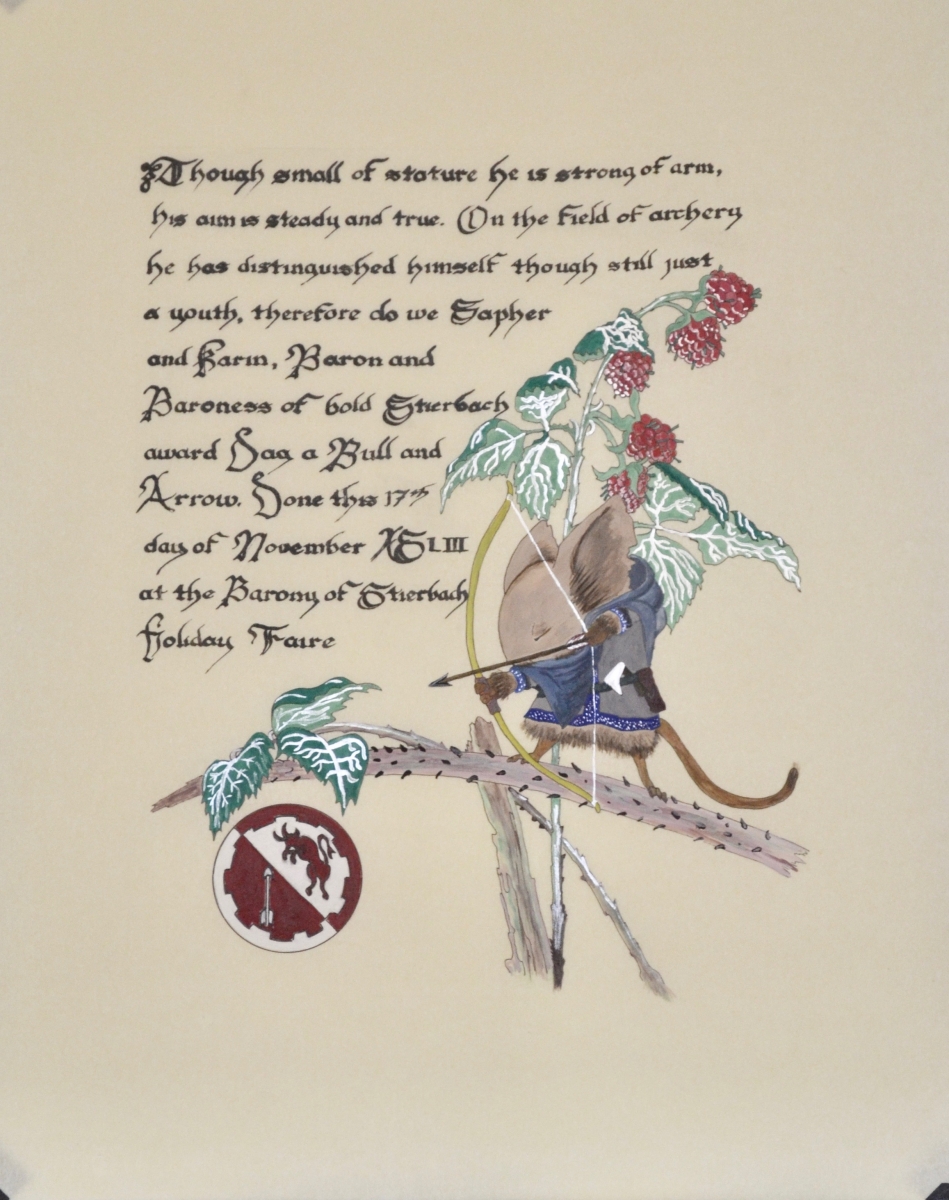 Though small of stature he is strong of arm,
his aim is steady and true. On the field of archery
he has distinguished himself though still just
a youth, therefore do we Sapher
and Karin, Baron and
Baroness of bold Stierbach
award Dag a Bull and
Arrow. Done this 17th
day of November XSLIII
at the Barony of Stierbach
Holiday Faire